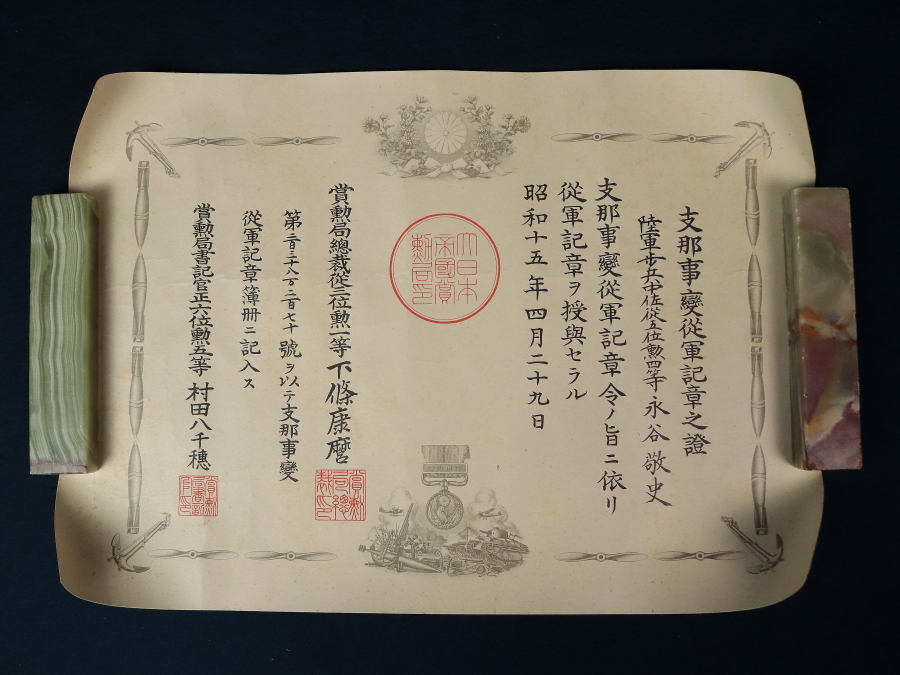 支那事變從軍記章之證
陸軍歩兵中佐從五位勲四等永谷敬史
支那事變從軍記章令ノ旨ニ依リ
從軍記章ヲ授與セラル
昭和十五年四月二十九日
大日本
帝國賞
勲局印
賞勲局總裁從三位勲一等下條康麿
賞勲
局總
裁印
第二百三十八万二百七十號ヲ以テ支那事變
從軍記章簿册ニ記入ス
賞勲局書記官正六位勲五等村田八千穗
賞勲
局書記
官印